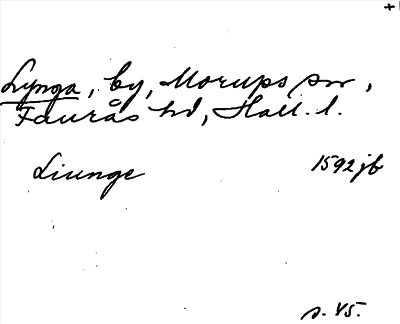 +
Lynga, by, Morups sn,
Faurås hd, Hall. l.
Liunge 1592 jb
s. 45.